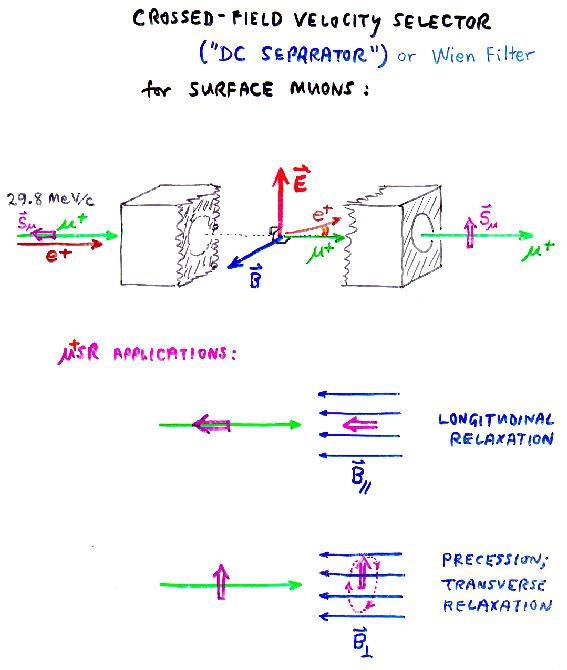 CROSSED-FIELD VELOCITY SELECTOR
("DC SEPARATOR") or Wien Filter
for SURFACE MUONS:
E⃗
29.8 MeV/c
S⃗μ μ+
e+
e+
μ+
B⃗
S⃗μ
μ+
μ+SR APPLICATIONS:
LONGITUDINAL
RELAXATION
B⃗//
PRECESSION;
TRANSVERSE
RELAXATION
B⃗⊥